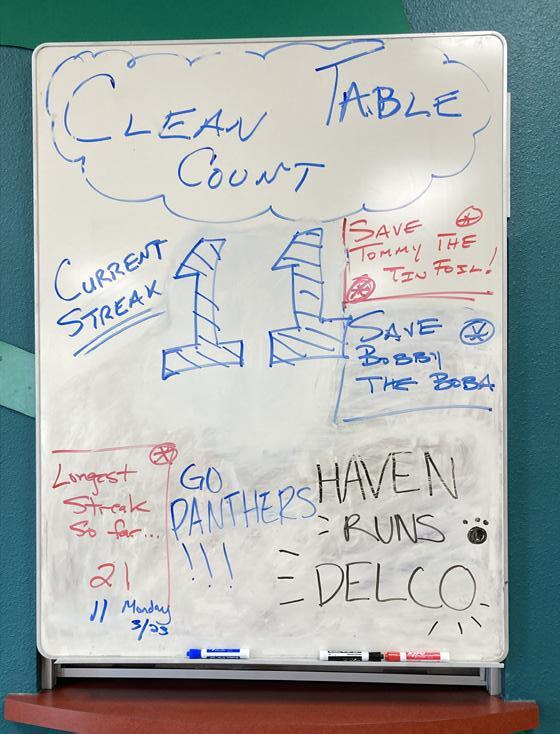 CLEAN TABLE
COUNT
CURRENT
STREAK
11
SAVE
TOMMY THE
TIN FOIL!
SAVE
BOBBY
THE BOBA
Longest
Streak
So far...
21
11 Monday
3/23
GO
PANTHERS
!!!
HAVEN
RUNS
DELCO